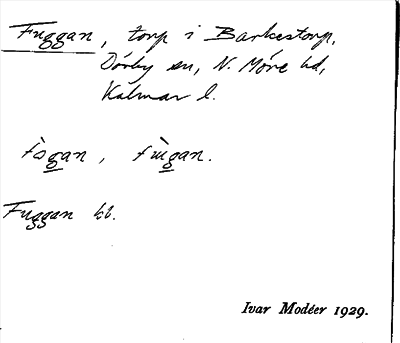 Fuggan, torp i Barkestorp,
Dörby sn, N. Möre hd,
Kalmar l.
fògan, fùgan.
Fuggan kb.
Ivar Modéer 1929.